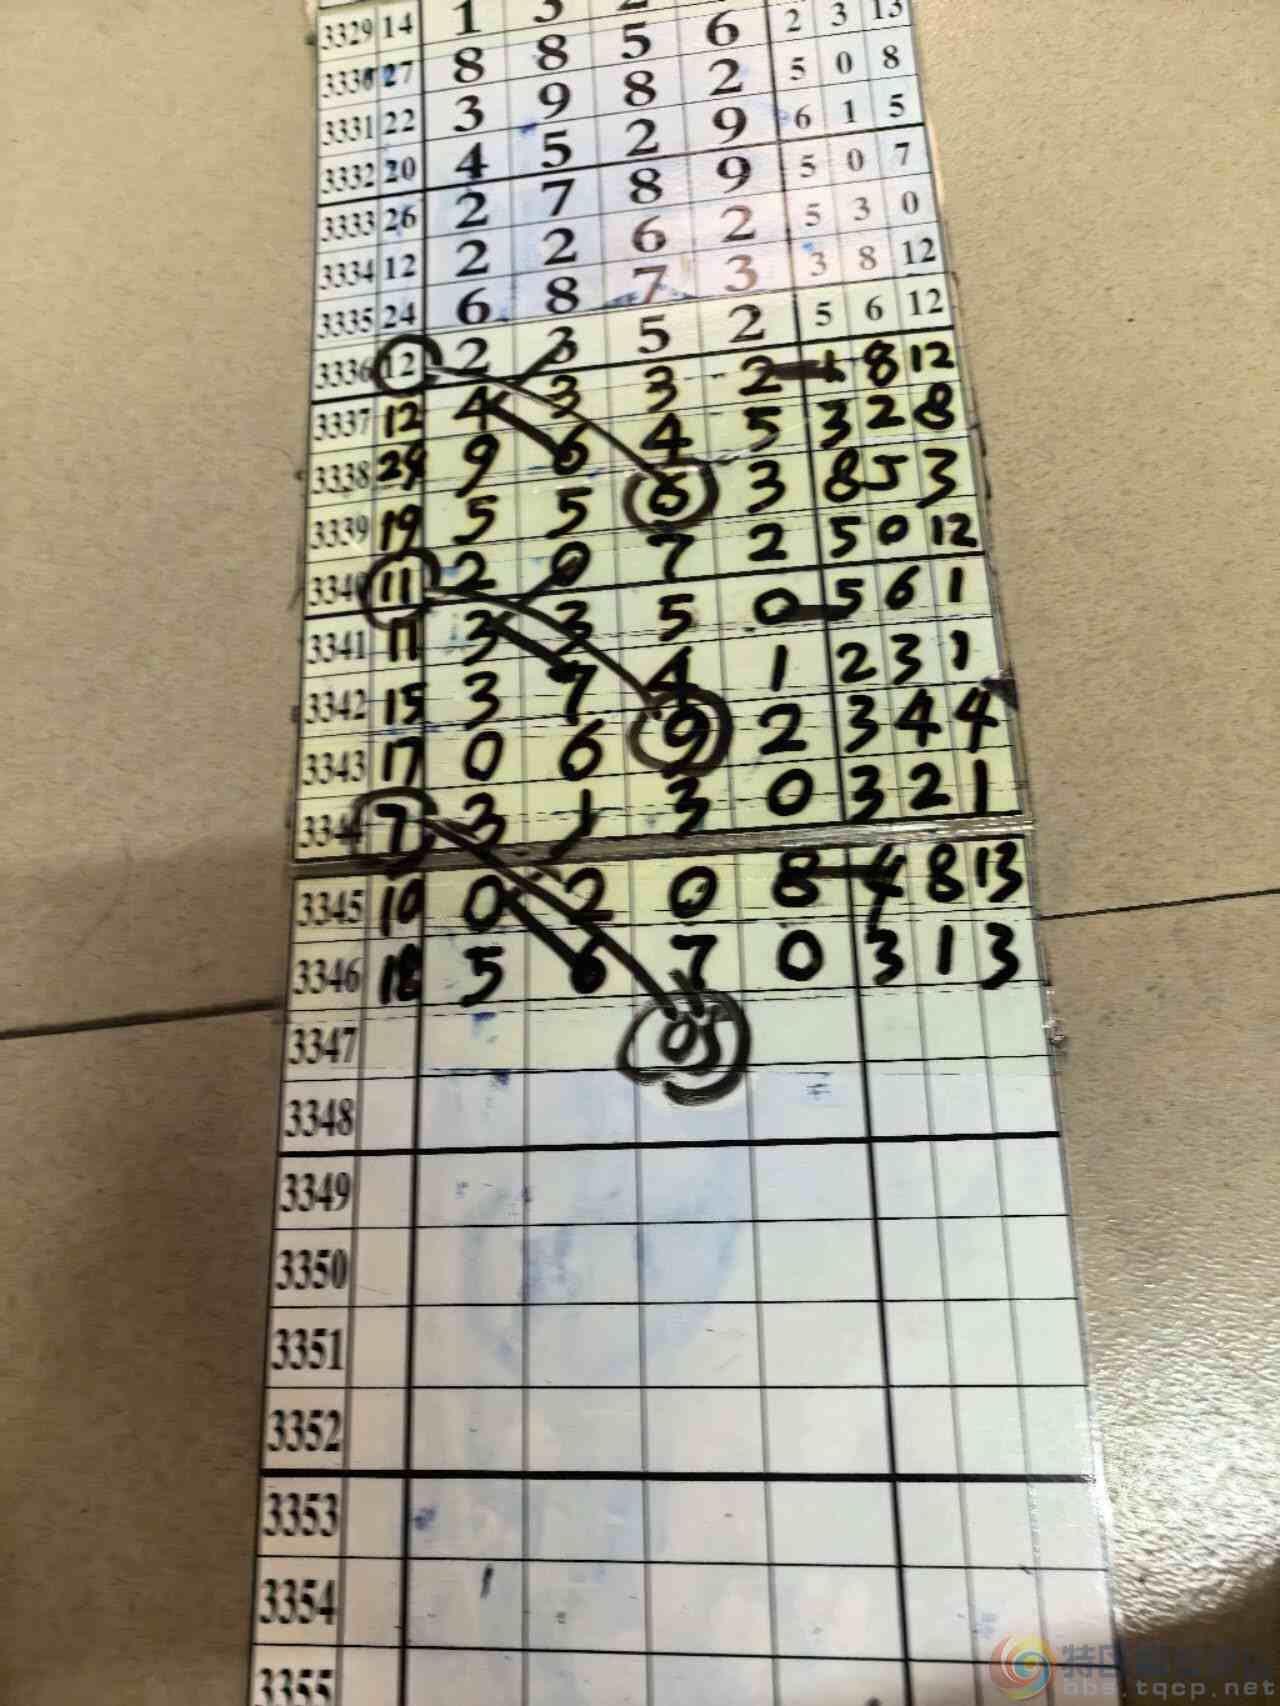 3329 14 1 3 2
3330 27 8 8 5 6 2 3 13
3331 22 3 9 8 2 5 0 8
3332 20 4 5 2 9 6 1 5
3333 26 2 7 8 9 5 0 7
3334 12 2 2 6 2 5 3 0
3335 24 6 8 7 3 3 8 12
3336 12 2 3 5 2 5 6 12
3337 12 4 3 3 2 1 8 12
3338 24 9 6 4 5 3 2 8
3339 19 5 5 6 3 8 5 3
3340 11 2 0 7 2 5 0 12
3341 11 3 3 5 0 5 6 1
3342 15 3 7 4 1 2 3 1
3343 17 0 6 9 2 3 4 4
3344 7 3 1 3 0 3 2 1
3345 10 0 2 0 8 4 8 13
3346 18 5 6 7 0 3 1 3
3347 05
3348
3349
3350
3351
3352
3353
3354
3355
bbs.tqcp.net